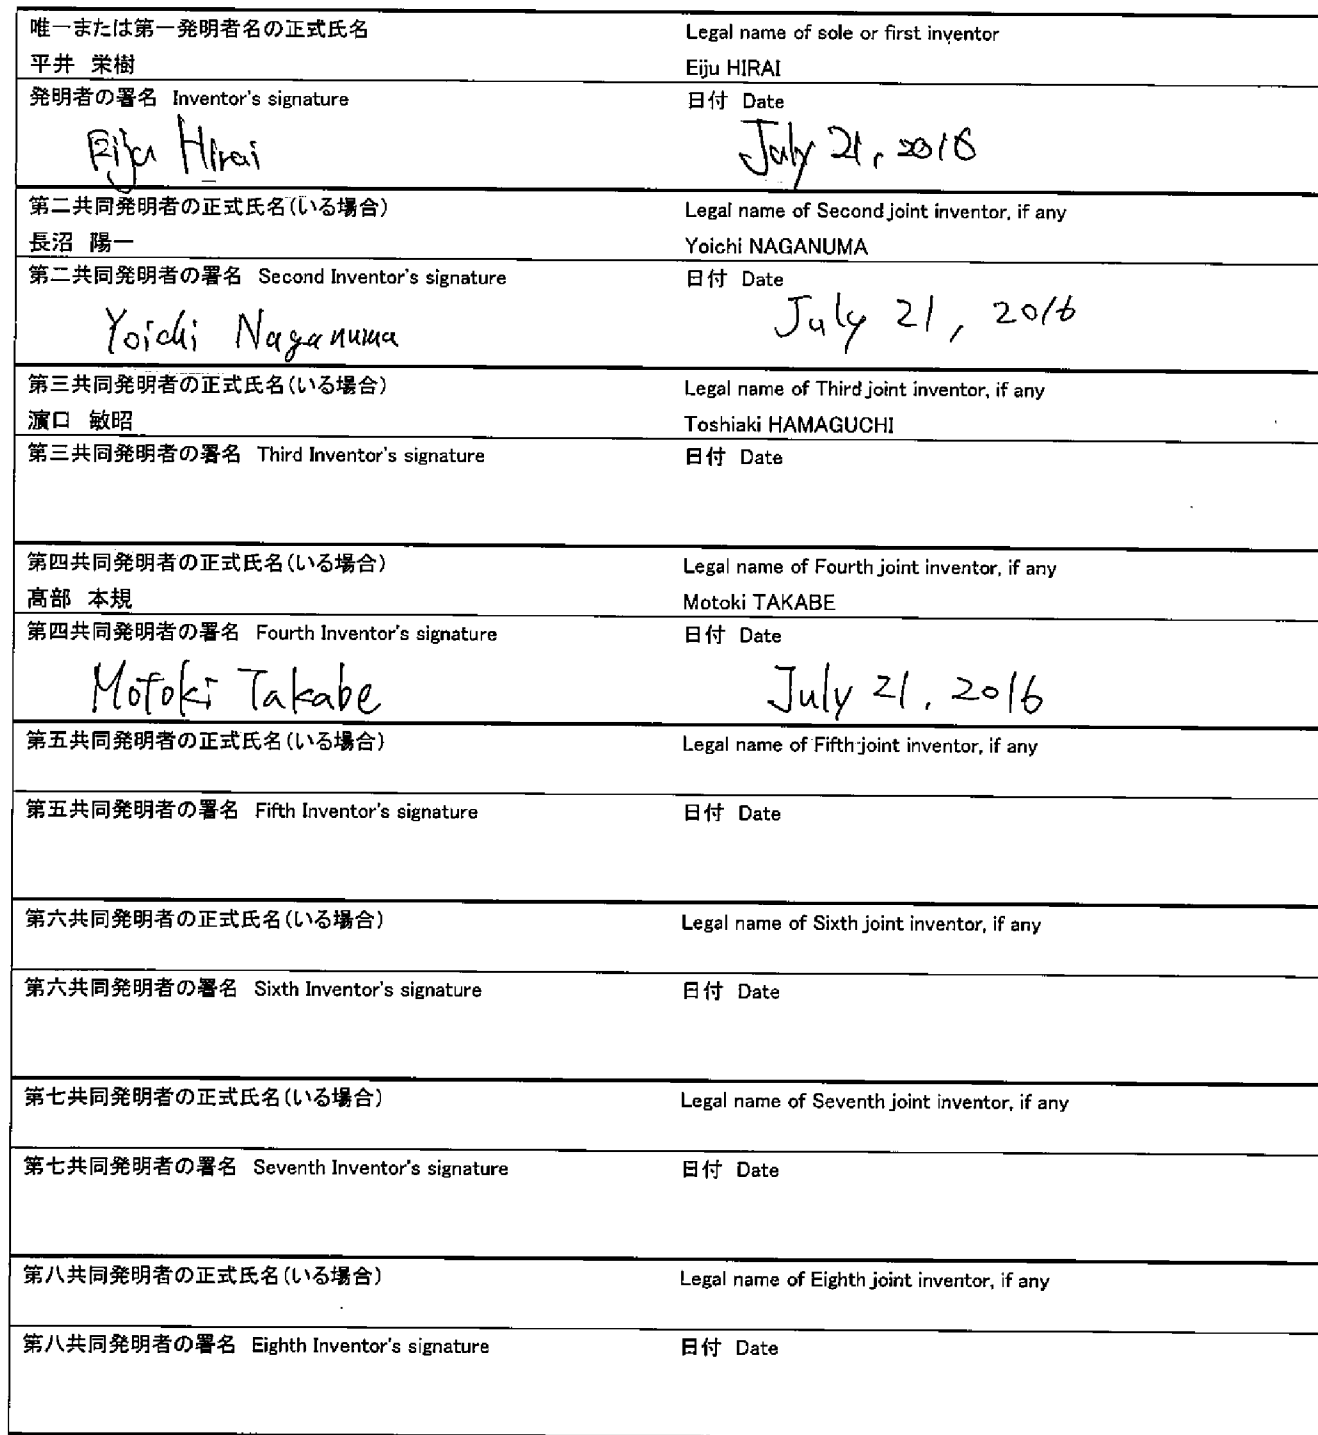 唯一または第一発明者名の正式氏名 Legal name of sole or first inventor
平井 栄樹 Eiju HIRAI
発明者の署名 Inventor's signature 日付 Date
Eiju Hirai July 21, 2016
第二共同発明者の正式氏名(いる場合) Legal name of Second joint inventor, if any
長沼 陽一 Yoichi NAGANUMA
第二共同発明者の署名 Second Inventor's signature 日付 Date
Yoichi Naganuma July 21, 2016
第三共同発明者の正式氏名(いる場合) Legal name of Third joint inventor, if any
濵口 敏昭 Toshiaki HAMAGUCHI
第三共同発明者の署名 Third Inventor's signature 日付 Date
第四共同発明者の正式氏名(いる場合) Legal name of Fourth joint inventor, if any
髙部 本規 Motoki TAKABE
第四共同発明者の署名 Fourth Inventor's signature 日付 Date
Motoki Takabe July 21, 2016
第五共同発明者の正式氏名(いる場合) Legal name of Fifth joint inventor, if any
第五共同発明者の署名 Fifth Inventor's signature 日付 Date
第六共同発明者の正式氏名(いる場合) Legal name of Sixth joint inventor, if any
第六共同発明者の署名 Sixth Inventor's signature 日付 Date
第七共同発明者の正式氏名(いる場合) Legal name of Seventh joint inventor, if any
第七共同発明者の署名 Seventh Inventor's signature 日付 Date
第八共同発明者の正式氏名(いる場合) Legal name of Eighth joint inventor, if any
第八共同発明者の署名 Eighth Inventor's signature 日付 Date